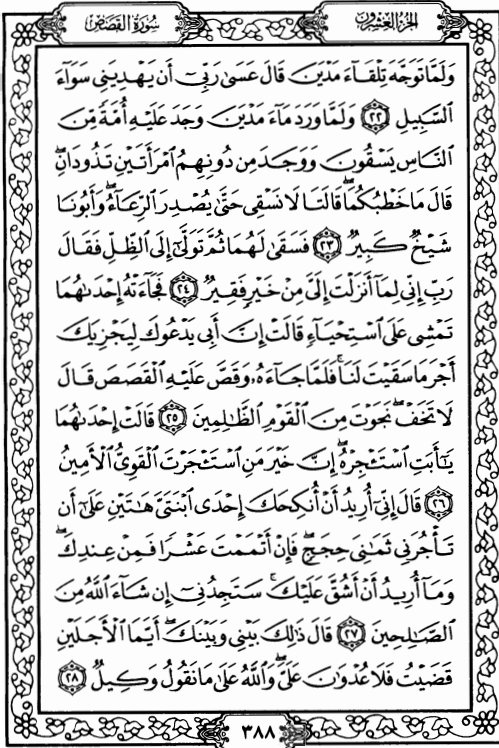 الجزء العشرون
سورة القصص
وَلَمَّا تَوَجَّهَ تِلْقَاءَ مَدْيَنَ قَالَ عَسَىٰ رَبِّي أَن يَهْدِيَنِي سَوَاءَ
السَّبِيلِ ٢٢ وَلَمَّا وَرَدَ مَاءَ مَدْيَنَ وَجَدَ عَلَيْهِ أُمَّةً مِّنَ
النَّاسِ يَسْقُونَ وَوَجَدَ مِن دُونِهِمُ امْرَأَتَيْنِ تَذُودَانِ ۖ
قَالَ مَا خَطْبُكُمَا ۖ قَالَتَا لَا نَسْقِي حَتَّىٰ يُصْدِرَ الرِّعَاءُ ۖ وَأَبُونَا
شَيْخٌ كَبِيرٌ ٢٣ فَسَقَىٰ لَهُمَا ثُمَّ تَوَلَّىٰ إِلَى الظِّلِّ فَقَالَ
رَبِّ إِنِّي لِمَا أَنزَلْتَ إِلَيَّ مِنْ خَيْرٍ فَقِيرٌ ٢٤ فَجَاءَتْهُ إِحْدَاهُمَا
تَمْشِي عَلَى اسْتِحْيَاءٍ قَالَتْ إِنَّ أَبِي يَدْعُوكَ لِيَجْزِيَكَ
أَجْرَ مَا سَقَيْتَ لَنَا ۚ فَلَمَّا جَاءَهُ وَقَصَّ عَلَيْهِ الْقَصَصَ قَالَ
لَا تَخَفْ ۖ نَجَوْتَ مِنَ الْقَوْمِ الظَّالِمِينَ ٢٥ قَالَتْ إِحْدَاهُمَا
يَا أَبَتِ اسْتَأْجِرْهُ ۖ إِنَّ خَيْرَ مَنِ اسْتَأْجَرْتَ الْقَوِيُّ الْأَمِينُ
٢٦ قَالَ إِنِّي أُرِيدُ أَنْ أُنكِحَكَ إِحْدَى ابْنَتَيَّ هَاتَيْنِ عَلَىٰ أَن
تَأْجُرَنِي ثَمَانِيَ حِجَجٍ ۖ فَإِنْ أَتْمَمْتَ عَشْرًا فَمِنْ عِندِكَ ۖ
وَمَا أُرِيدُ أَنْ أَشُقَّ عَلَيْكَ ۚ سَتَجِدُنِي إِن شَاءَ اللَّهُ مِنَ
الصَّالِحِينَ ٢٧ قَالَ ذَٰلِكَ بَيْنِي وَبَيْنَكَ ۖ أَيَّمَا الْأَجَلَيْنِ
قَضَيْتُ فَلَا عُدْوَانَ عَلَيَّ ۖ وَاللَّهُ عَلَىٰ مَا نَقُولُ وَكِيلٌ ٢٨
٣٨٨